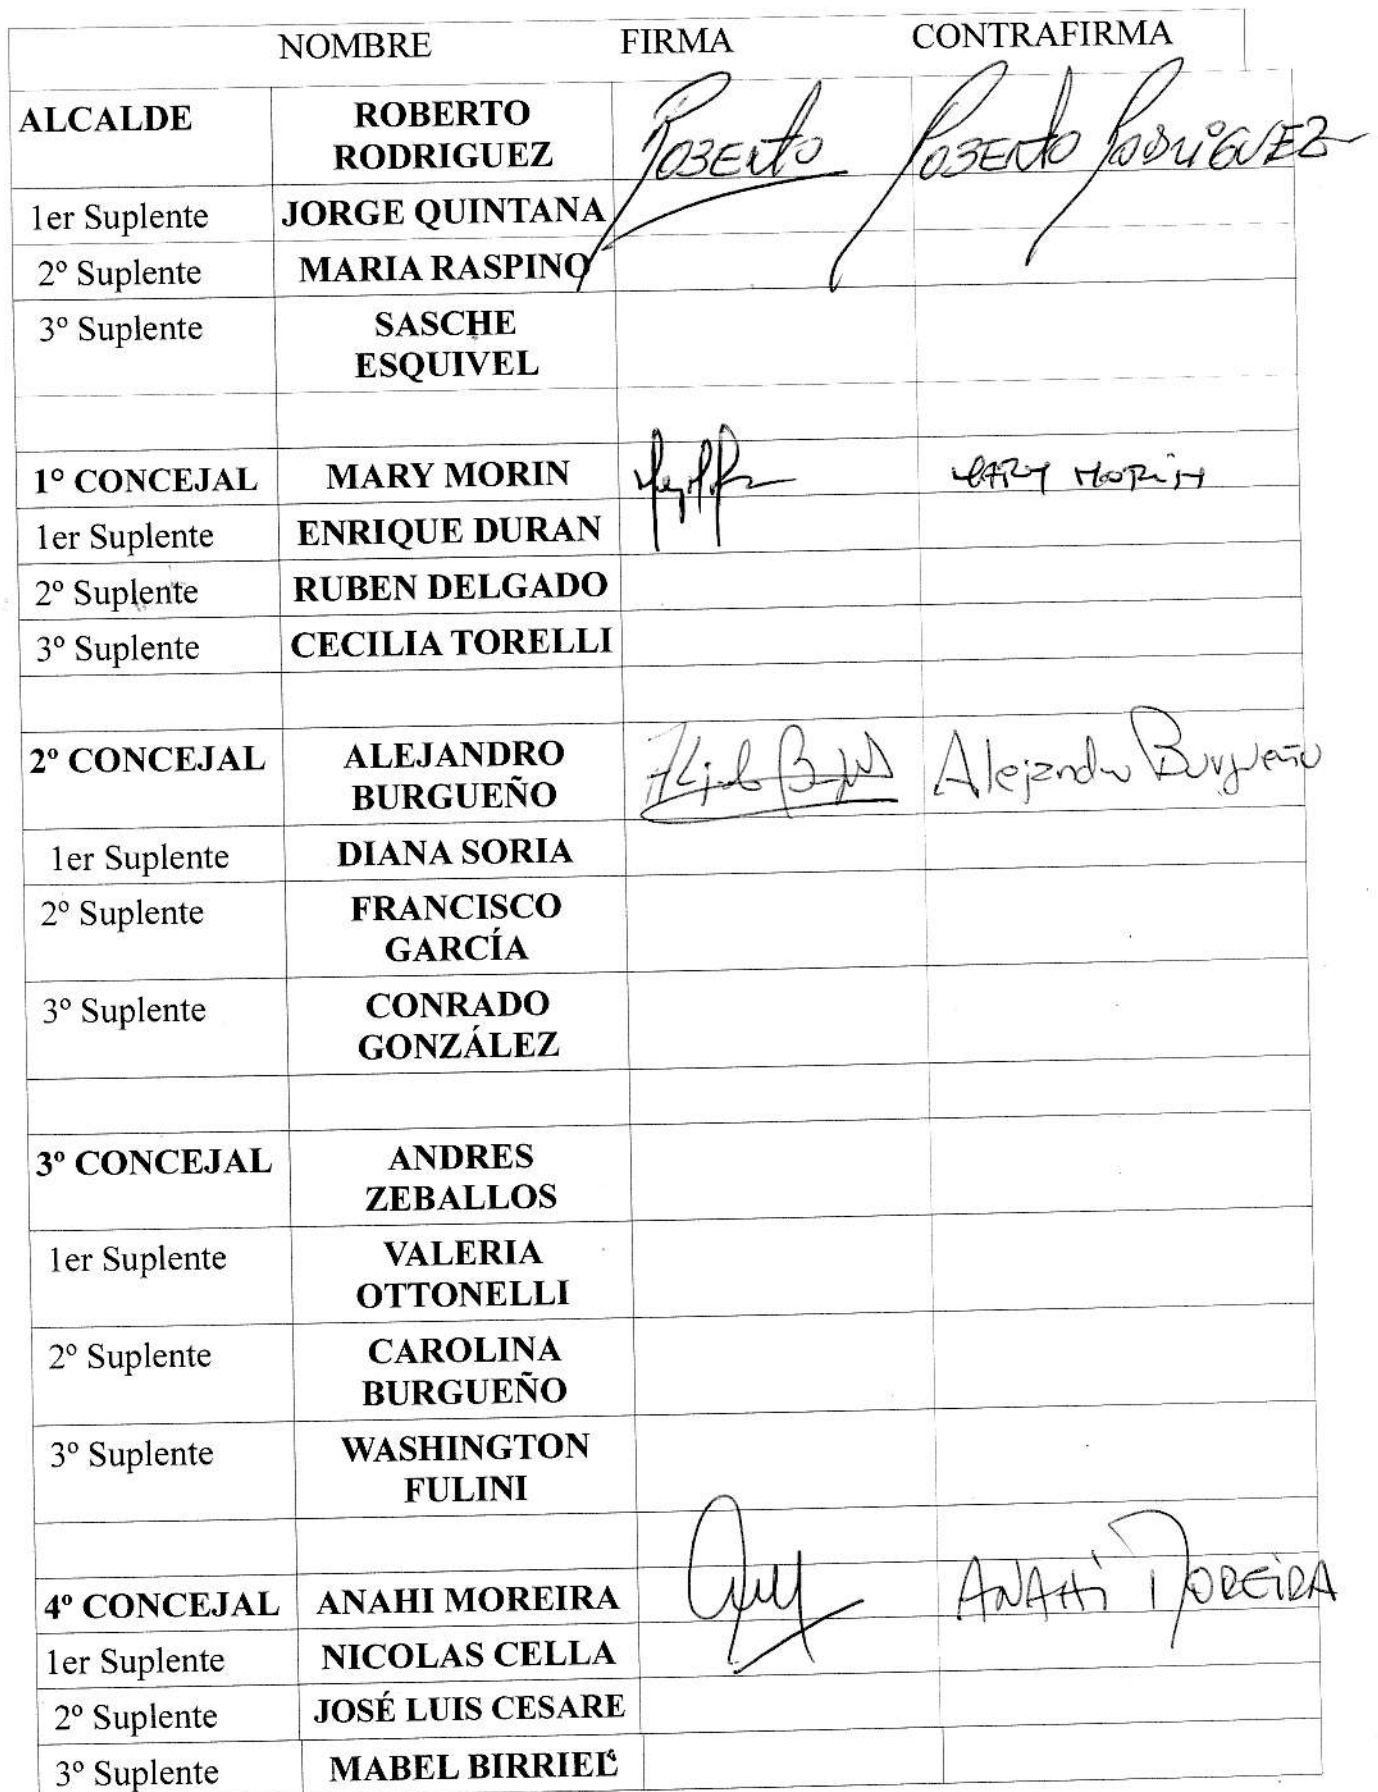 NOMBRE FIRMA CONTRAFIRMA
ALCALDE ROBERTO RODRIGUEZ Roberto Roberto Rodriguez
1er Suplente JORGE QUINTANA
2º Suplente MARIA RASPINO
3º Suplente SASCHE ESQUIVEL
1º CONCEJAL MARY MORIN MARY MORIN
1er Suplente ENRIQUE DURAN
2º Suplente RUBEN DELGADO
3º Suplente CECILIA TORELLI
2º CONCEJAL ALEJANDRO BURGUEÑO Alejandro Burgueño
1er Suplente DIANA SORIA
2º Suplente FRANCISCO GARCÍA
3º Suplente CONRADO GONZÁLEZ
3º CONCEJAL ANDRES ZEBALLOS
1er Suplente VALERIA OTTONELLI
2º Suplente CAROLINA BURGUEÑO
3º Suplente WASHINGTON FULINI
4º CONCEJAL ANAHI MOREIRA ANAHI MOREIRA
1er Suplente NICOLAS CELLA
2º Suplente JOSÉ LUIS CESARE
3º Suplente MABEL BIRRIEL